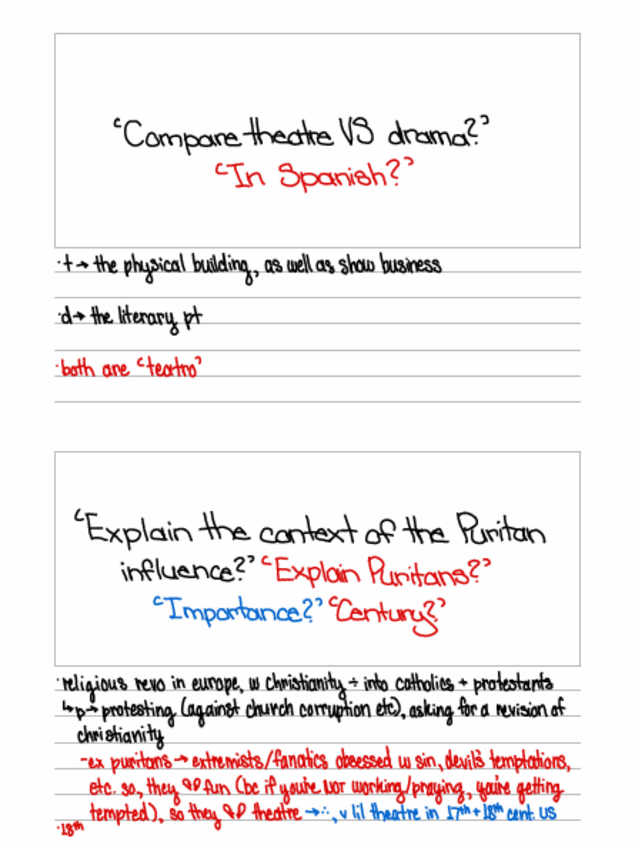 'Compare theatre VS drama?'
'In Spanish?'
·t→ the physical building, as well as show business
·d→ the literary pt
·both are 'teatro'
'Explain the context of the Puritan
influence?' 'Explain Puritans?'
'Importance?' 'Century?'
·religious revo in europe, w christianity ÷ into catholics + protestants
↳p→ protesting (against church corruption etc), asking for a revision of
christianity
-ex puritans→ extremists/fanatics obsessed w sin, devil's temptations,
etc. so, they fun (bc if you're NOT working/praying, you're getting
tempted), so they theatre →∴, v lil theatre in 17th + 18th cent US
·18th